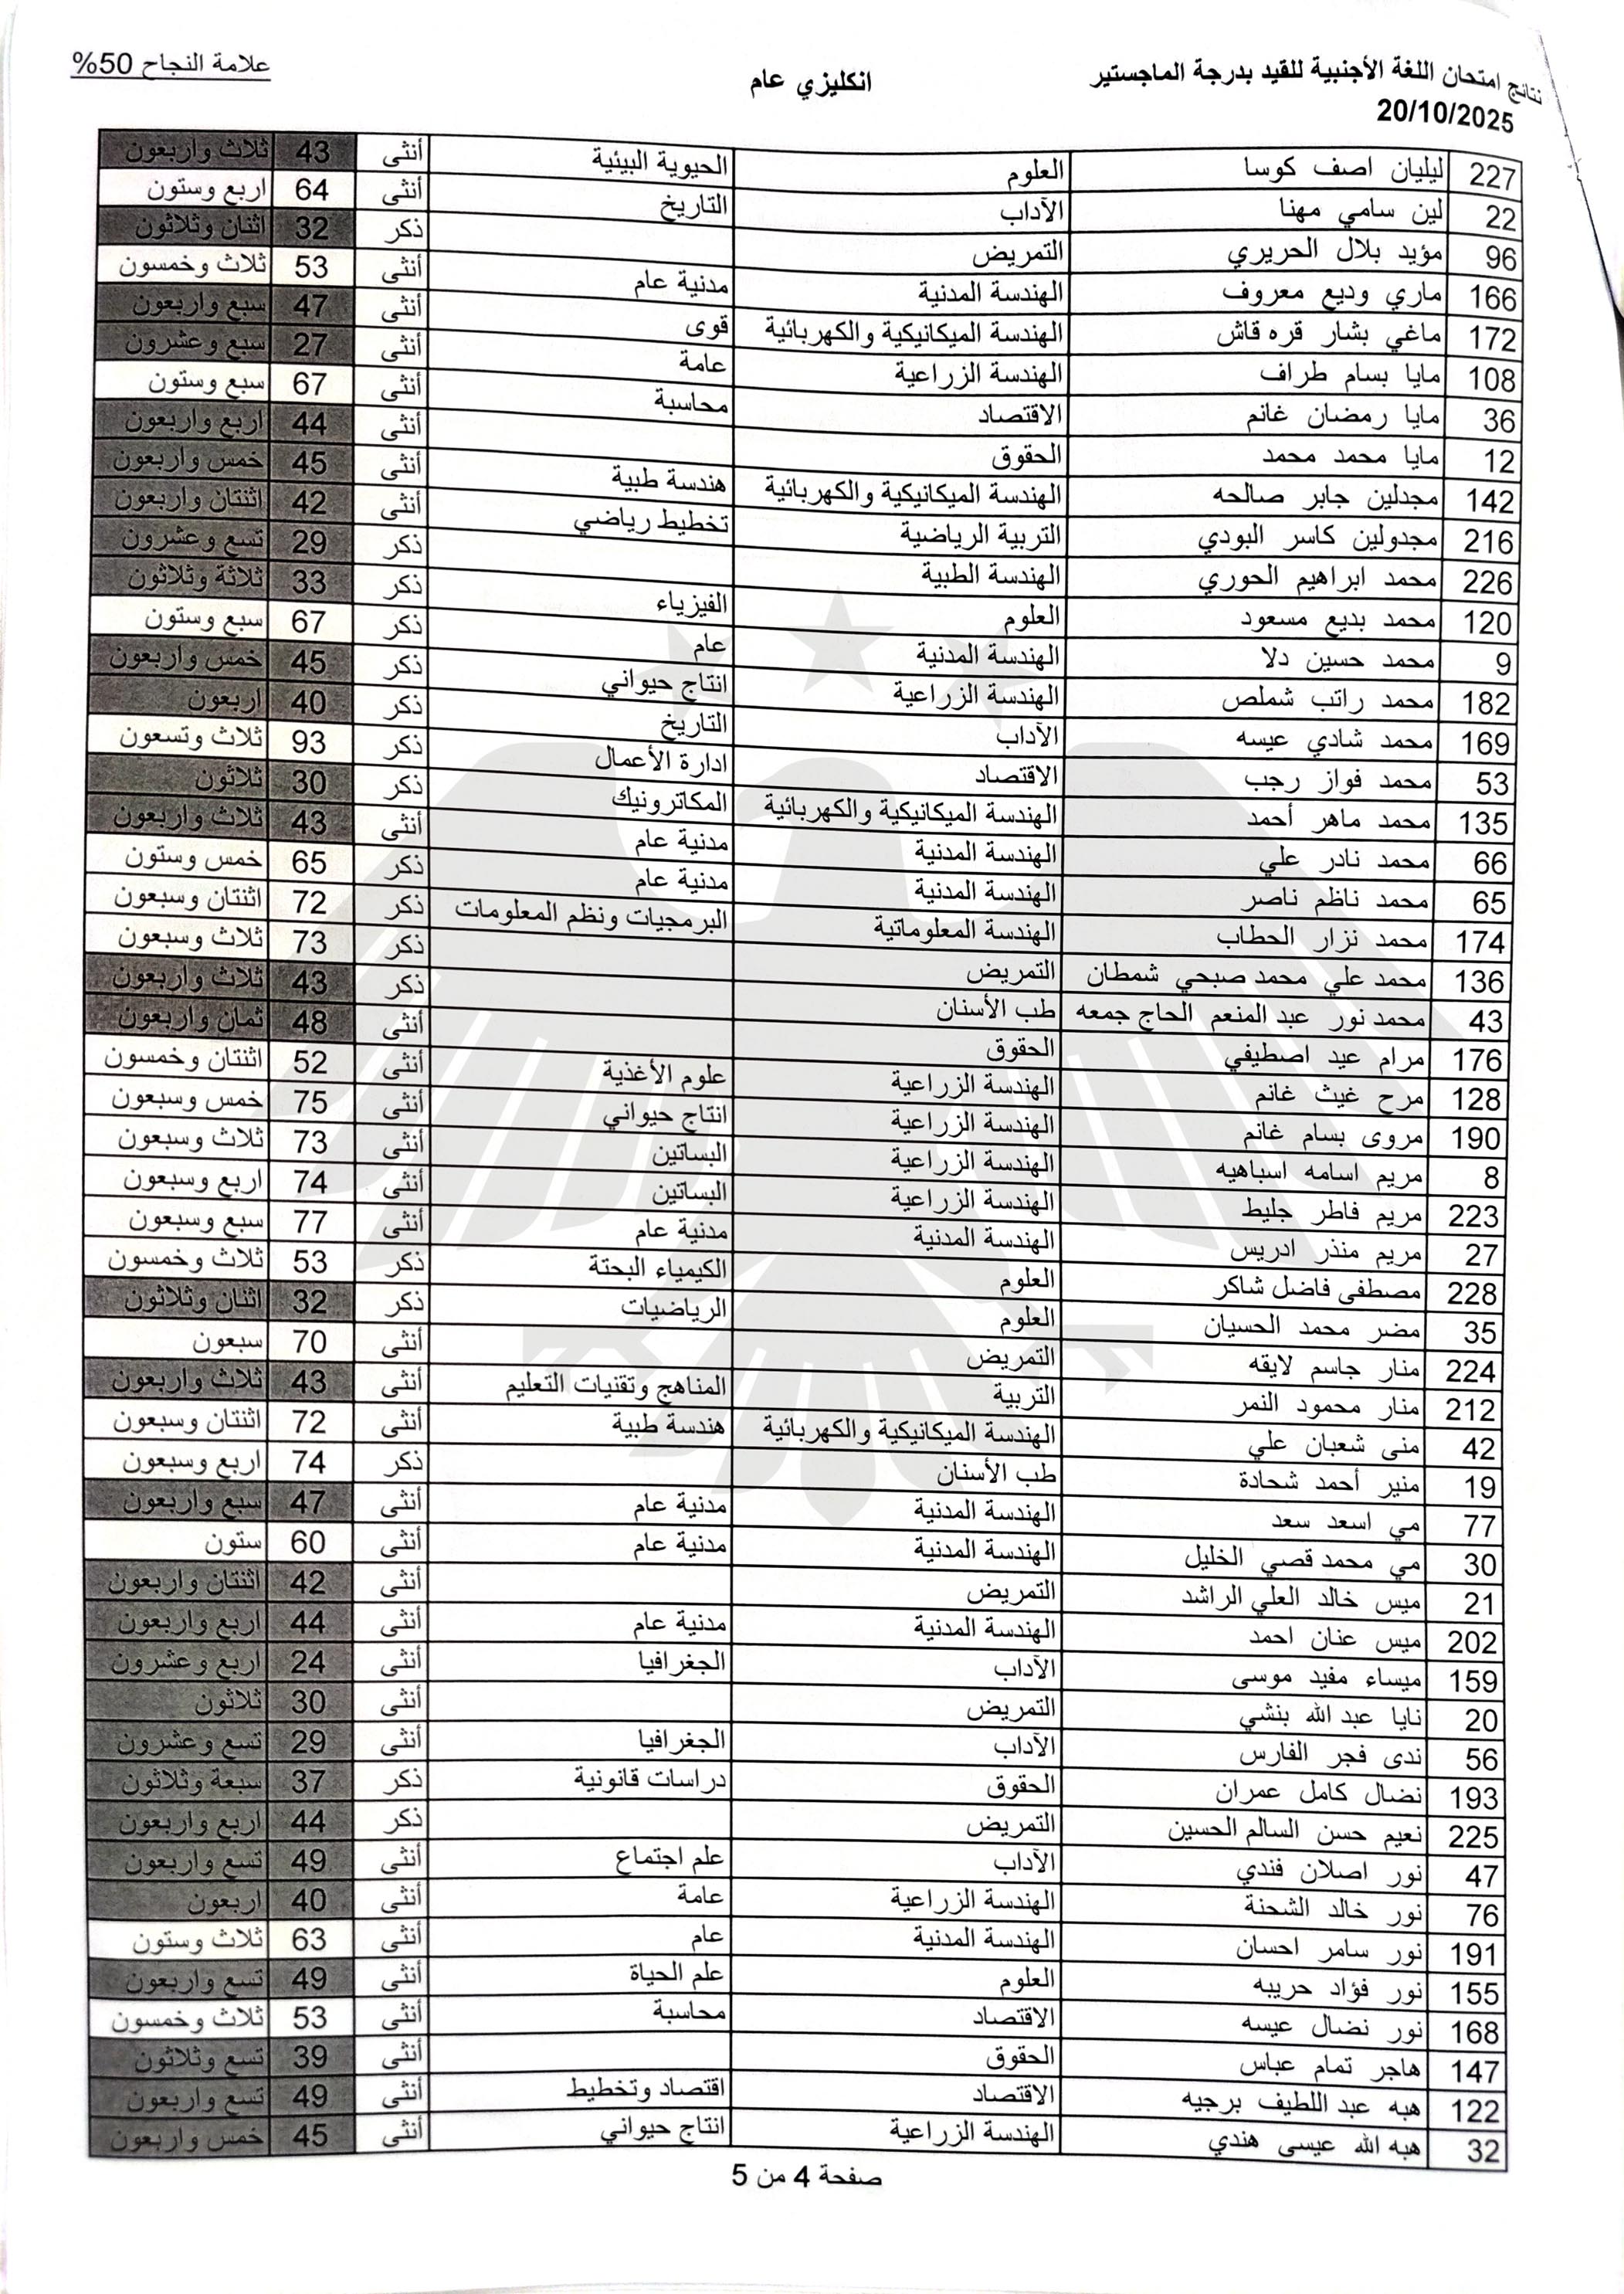 نتائج امتحان اللغة الأجنبية للقيد بدرجة الماجستير انكليزي عام علامة النجاح 50%
20/10/2025
227 ليليان اصف كوسا العلوم الحيوية البيئية أنثى 43 ثلاث واربعون
22 لين سامي مهنا الآداب التاريخ أنثى 64 اربع وستون
96 مؤيد بلال الحريري التمريض ذكر 32 اثنان وثلاثون
166 ماري وديع معروف الهندسة المدنية مدنية عام أنثى 53 ثلاث وخمسون
172 ماغي بشار قره قاش الهندسة الميكانيكية والكهربائية قوى أنثى 47 سبع واربعون
108 مايا بسام طراف الهندسة الزراعية عامة أنثى 27 سبع وعشرون
36 مايا رمضان غانم الاقتصاد محاسبة أنثى 67 سبع وستون
12 مايا محمد محمد الحقوق أنثى 44 اربع واربعون
142 مجدلين جابر صالحه الهندسة الميكانيكية والكهربائية هندسة طبية أنثى 45 خمس واربعون
216 مجدولين كاسر البودي التربية الرياضية تخطيط رياضي أنثى 42 اثنتان واربعون
226 محمد ابراهيم الحوري الهندسة الطبية ذكر 29 تسع وعشرون
120 محمد بديع مسعود العلوم الفيزياء ذكر 33 ثلاثة وثلاثون
9 محمد حسين دلا الهندسة المدنية عام ذكر 67 سبع وستون
182 محمد راتب شملص الهندسة الزراعية انتاج حيواني ذكر 45 خمس واربعون
169 محمد شادي عيسه الآداب التاريخ ذكر 40 اربعون
53 محمد فواز رجب الاقتصاد ادارة الأعمال ذكر 93 ثلاث وتسعون
135 محمد ماهر أحمد الهندسة الميكانيكية والكهربائية المكاترونيك ذكر 30 ثلاثون
66 محمد نادر علي الهندسة المدنية مدنية عام أنثى 43 ثلاث واربعون
65 محمد ناظم ناصر الهندسة المدنية مدنية عام ذكر 65 خمس وستون
174 محمد نزار الحطاب الهندسة المعلوماتية البرمجيات ونظم المعلومات ذكر 72 اثنتان وسبعون
136 محمد علي محمد صبحي شمطان التمريض ذكر 73 ثلاث وسبعون
43 محمد نور عبد المنعم الحاج جمعه طب الأسنان ذكر 43 ثلاث واربعون
176 مرام عيد اصطيفي الحقوق أنثى 48 ثمان واربعون
128 مرح غيث غانم الهندسة الزراعية علوم الأغذية أنثى 52 اثنتان وخمسون
190 مروى بسام غانم الهندسة الزراعية انتاج حيواني أنثى 75 خمس وسبعون
8 مريم اسامه اسباهيه الهندسة الزراعية البساتين أنثى 73 ثلاث وسبعون
223 مريم فاطر جليط الهندسة الزراعية البساتين أنثى 74 اربع وسبعون
27 مريم منذر ادريس الهندسة المدنية مدنية عام أنثى 77 سبع وسبعون
228 مصطفى فاضل شاكر العلوم الكيمياء البحتة ذكر 53 ثلاث وخمسون
35 مضر محمد الحسيان العلوم الرياضيات ذكر 32 اثنان وثلاثون
224 منار جاسم لايقه التمريض أنثى 70 سبعون
212 منار محمود النمر التربية المناهج وتقنيات التعليم أنثى 43 ثلاث واربعون
42 منى شعبان علي الهندسة الميكانيكية والكهربائية هندسة طبية أنثى 72 اثنتان وسبعون
19 منير أحمد شحادة طب الأسنان ذكر 74 اربع وسبعون
77 مي اسعد سعد الهندسة المدنية مدنية عام أنثى 47 سبع واربعون
30 مي محمد قصي الخليل الهندسة المدنية مدنية عام أنثى 60 ستون
21 ميس خالد العلي الراشد التمريض أنثى 42 اثنتان واربعون
202 ميس عنان احمد الهندسة المدنية مدنية عام أنثى 44 اربع واربعون
159 ميساء مفيد موسى الآداب الجغرافيا أنثى 24 اربع وعشرون
20 نايا عبد الله بنشي التمريض أنثى 30 ثلاثون
56 ندى فجر الفارس الآداب الجغرافيا أنثى 29 تسع وعشرون
193 نضال كامل عمران الحقوق دراسات قانونية ذكر 37 سبعة وثلاثون
225 نعيم حسن السالم الحسين التمريض ذكر 44 اربع واربعون
47 نور اصلان فندي الآداب علم اجتماع أنثى 49 تسع واربعون
76 نور خالد الشحنة الهندسة الزراعية عامة أنثى 40 اربعون
191 نور سامر احسان الهندسة المدنية عام أنثى 63 ثلاث وستون
155 نور فؤاد حريبه العلوم علم الحياة أنثى 49 تسع واربعون
168 نور نضال عيسه الاقتصاد محاسبة أنثى 53 ثلاث وخمسون
147 هاجر تمام عباس الحقوق أنثى 39 تسع وثلاثون
122 هبه عبد اللطيف برجيه الاقتصاد اقتصاد وتخطيط أنثى 49 تسع واربعون
32 هبه الله عيسى هندي الهندسة الزراعية انتاج حيواني أنثى 45 خمس واربعون
صفحة 4 من 5